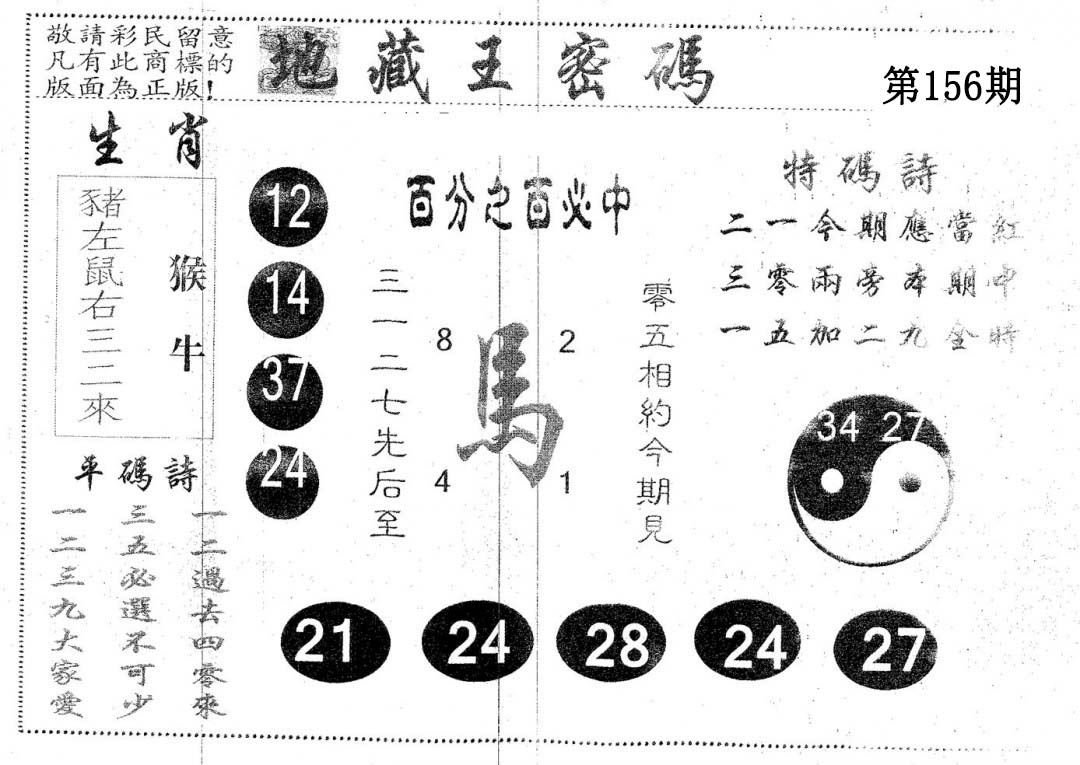 敬請彩民留意
凡有此商標的
版面為正版!
地藏王密碼
第156期
生肖
豬左鼠右三二來
猴牛
12
14
37
24
百分之百必中
三一二七先后至
8
2
馬
4
1
零五相約今期見
特碼詩
二一今期應當紅
三零兩旁本期中
一五加二九全時
34 27
平碼詩
一二過去四零來
三五必選不可少
一二三九大家愛
21
24
28
24
27